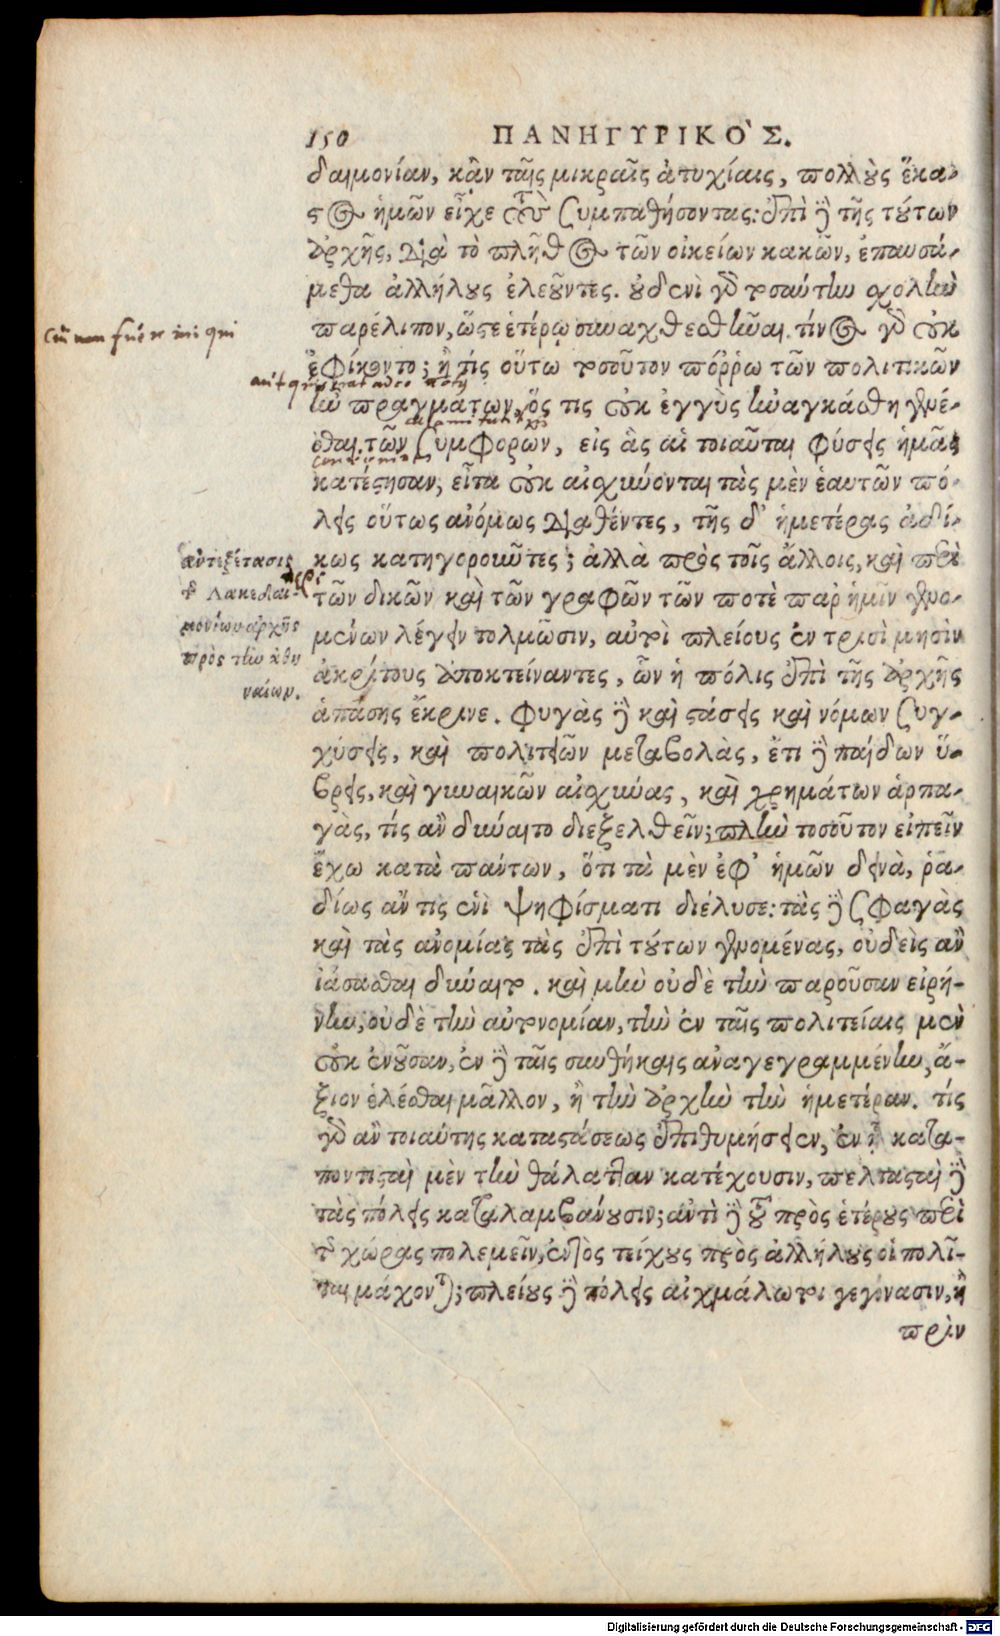 150 ΠΑΝΗΓΥΡΙΚΟ`Σ.
δαιμονίαν, κἂν ταῖς μικραῖς ἀτυχίαις, πολλοὺς ἕκα-
στος ἡμῶν εἶχε τοὺς συμπαθήσοντας: ἐπὶ δὲ τῆς τούτων
ἀρχῆς, διὰ τὸ πλῆθος τῶν οἰκείων κακῶν, ἐπαυσά-
μεθα ἀλλήλους ἐλεοῦντες. οὐδενὶ γὰρ τοσαύτην σχολὴν
παρέλιπον, ὥστε ἑτέρῳ συναχθεσθῆναι. τίνος γὰρ οὐκ
ἐφίκοντο; ἢ τίς οὕτω τοσοῦτον πόρρω τῶν πολιτικῶν
ἦν πραγμάτων, ὅς τις οὐκ ἐγγὺς ἠναγκάσθη γενέ-
σθαι τῶν συμφορων, εἰς ἃς αἱ τοιαῦται φύσεις ἡμᾶς
κατέστησαν; εἶτα οὐκ αἰσχύνονται τὰς μὲν ἑαυτῶν πό-
λεις οὕτως ἀνόμως διαθέντες, τῆς δ' ἡμετέρας ἀδί-
κως κατηγοροῦντες; ἀλλὰ πρὸς τοῖς ἄλλοις, καὶ περὶ
τῶν δικῶν καὶ τῶν γραφῶν τῶν ποτὲ παρ ἡμῖν γενο-
μένων λέγειν τολμῶσιν, αὐτοὶ πλείους ἐν τρισὶ μησὶν
ἀκρίτους ἀποκτείναντες, ὧν ἡ πόλις ἐπὶ τῆς ἀρχῆς
ἁπάσης ἔκρινε. φυγὰς δὲ καὶ στάσεις καὶ νόμων συγ-
χύσεις, καὶ πολιτειῶν μεταβολὰς, ἔτι δὲ παίδων ὕ-
βρεις, καὶ γυναικῶν αἰσχύνας, καὶ χρημάτων ἁρπα-
γὰς, τίς ἂν δύναιτο διεξελθεῖν; πλὴν τοσοῦτον εἰπεῖν
ἔχω κατὰ πάντων, ὅτι τὰ μὲν ἐφ' ἡμῶν δεινὰ, ῥα-
δίως ἄν τις ἑνὶ ψηφίσματι διέλυσε: τὰς δὲ σφαγὰς
καὶ τὰς ἀνομίας τὰς ἐπὶ τούτων γενομένας, οὐδεὶς ἂν
ἰάσασθαι δύναιτο. καὶ μὴν οὐδὲ τὴν παροῦσαν εἰρή-
νην, οὐδὲ τὴν αὐτονομίαν, τὴν ἐν ταῖς πολιτείαις μὲν
οὐκ ἐνοῦσαν, ἐν δὲ ταῖς συνθήκαις ἀναγεγραμμένην, ἄ-
ξιον ἑλέσθαι μᾶλλον, ἢ τὴν ἀρχὴν τὴν ἡμετέραν. τίς
γὰρ ἂν τοιαύτης καταστάσεως ἐπιθυμήσειεν, ἐν ᾗ κατα-
ποντισταὶ μὲν τὴν θάλατταν κατέχουσιν, πελτασταὶ δὲ
τὰς πόλεις καταλαμβάνουσιν; ἀντὶ δὲ τοῦ πρὸς ἑτέρους περὶ
τῆς χώρας πολεμεῖν, ἐντὸς τείχους πρὸς ἀλλήλους οἱ πολῖ-
ται μάχονται; πλείους δὲ πόλεις αἰχμάλωτοι γεγόνασιν, ἢ
πρὶν
ἀντεξέτασις
τῆς Λακεδαι-
μονίων ἀρχῆς
πρὸς τὴν ἀθη
ναίων.
Digitalisierung gefördert durch die Deutsche Forschungsgemeinschaft - DFG